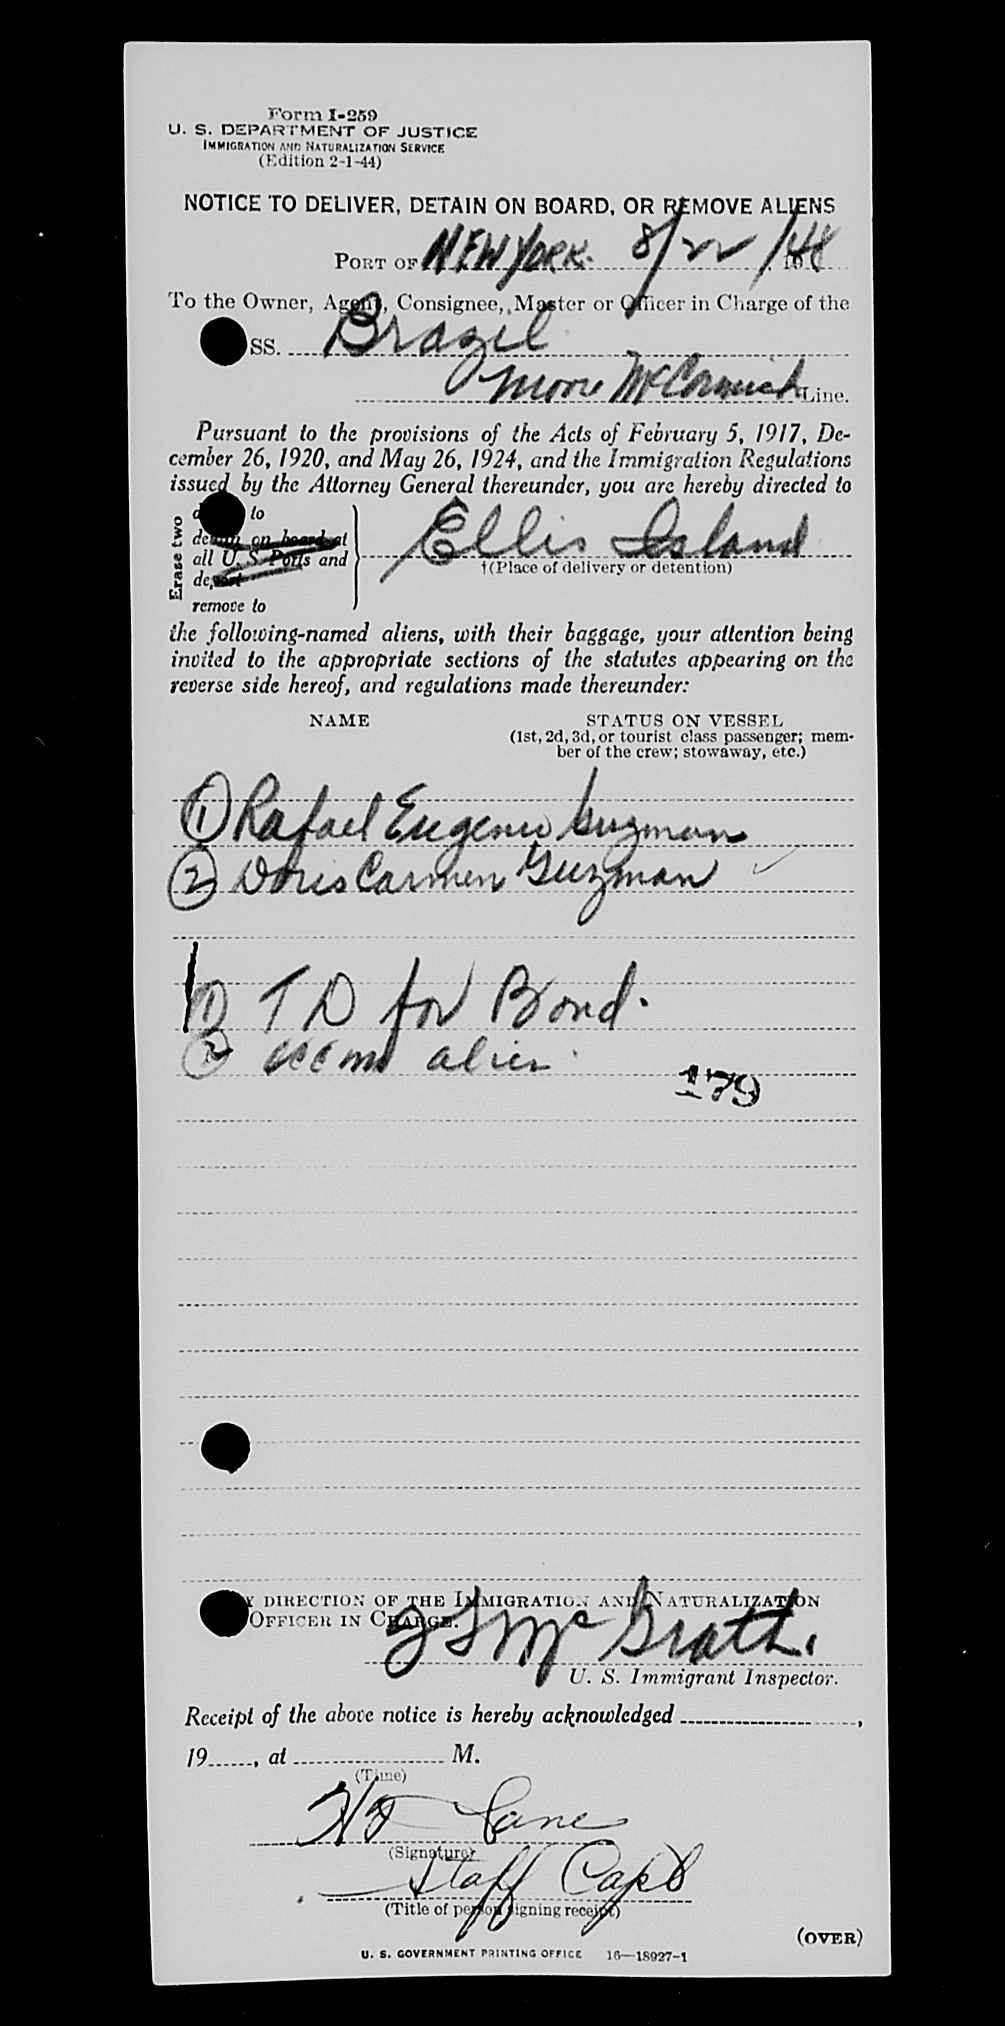 Form I-259
U. S. DEPARTMENT OF JUSTICE
IMMIGRATION AND NATURALIZATION SERVICE
(Edition 2-1-44)
NOTICE TO DELIVER, DETAIN ON BOARD, OR REMOVE ALIENS
PORT OF NEW YORK. 8/22/48
To the Owner, Agent, Consignee, Master or Officer in Charge of the
SS. Brazil
Moore McCormick Line.
Pursuant to the provisions of the Acts of February 5, 1917, De-
cember 26, 1920, and May 26, 1924, and the Immigration Regulations
issued by the Attorney General thereunder, you are hereby directed to
Erase two
to
detain on board at
all U. S. Ports and
deport
remove to
Ellis Island
†(Place of delivery or detention)
the following-named aliens, with their baggage, your attention being
invited to the appropriate sections of the statutes appearing on the
reverse side hereof, and regulations made thereunder:
NAME STATUS ON VESSEL
(1st, 2d, 3d, or tourist class passenger; mem-
ber of the crew; stowaway, etc.)
① Rafael Eugenio Guzman
② Doris Carmen Guzman ✓
① T D for Bond.
② accom alien
179
BY DIRECTION OF THE IMMIGRATION AND NATURALIZATION
OFFICER IN CHARGE.
McGrath.
U. S. Immigrant Inspector.
Receipt of the above notice is hereby acknowledged ,
19 , at M.
(Time)
Lane
(Signature)
Staff Capt
(Title of person signing receipt)
(OVER)
U. S. GOVERNMENT PRINTING OFFICE 16—18927-1